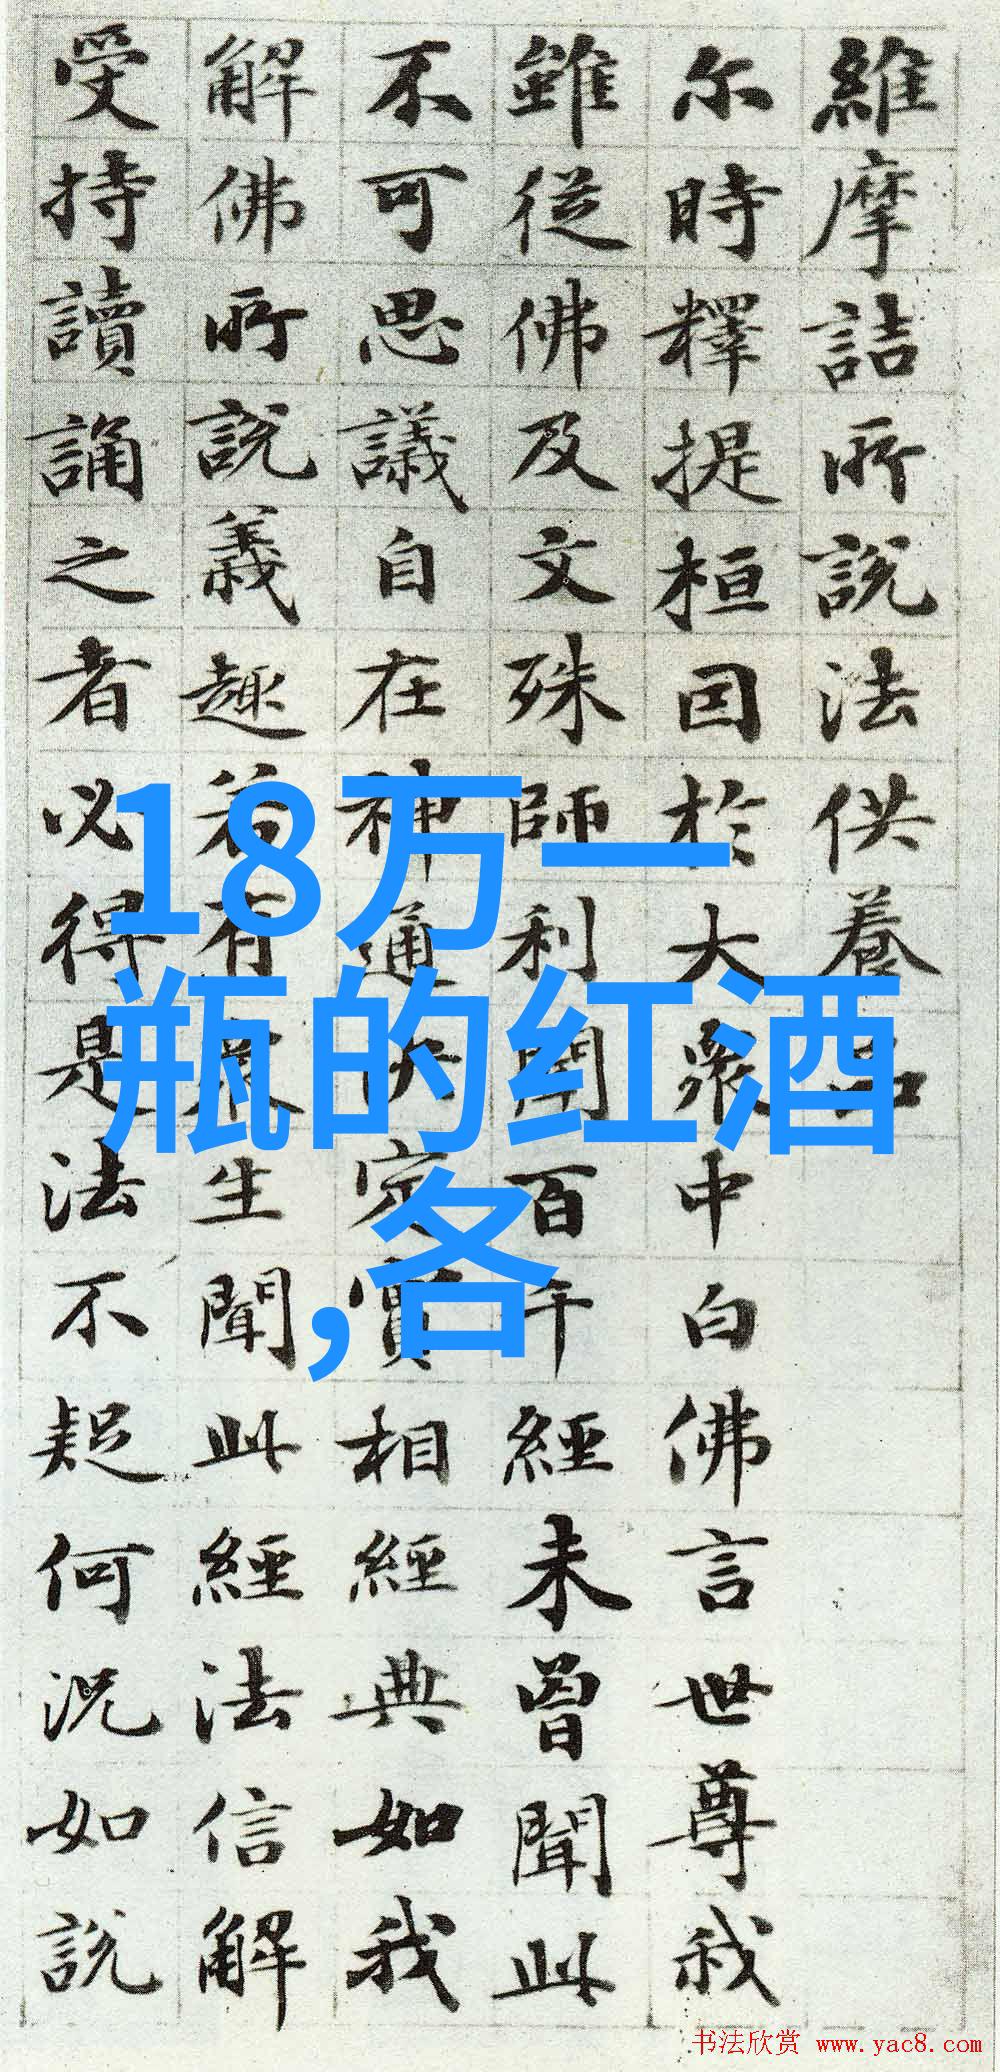 維摩詰所說法供養品
尔時釋提桓因於大衆中白佛言世尊我
雖從佛及文殊師利聞百千經未曾聞此
不可思議自在神通決定實相經典如我
解佛所說義趣若有衆生聞此經法信解
受持讀誦之者必得是法不疑何況如說
18万一
瓶的红酒
,各
书法欣赏 www.yac8.com